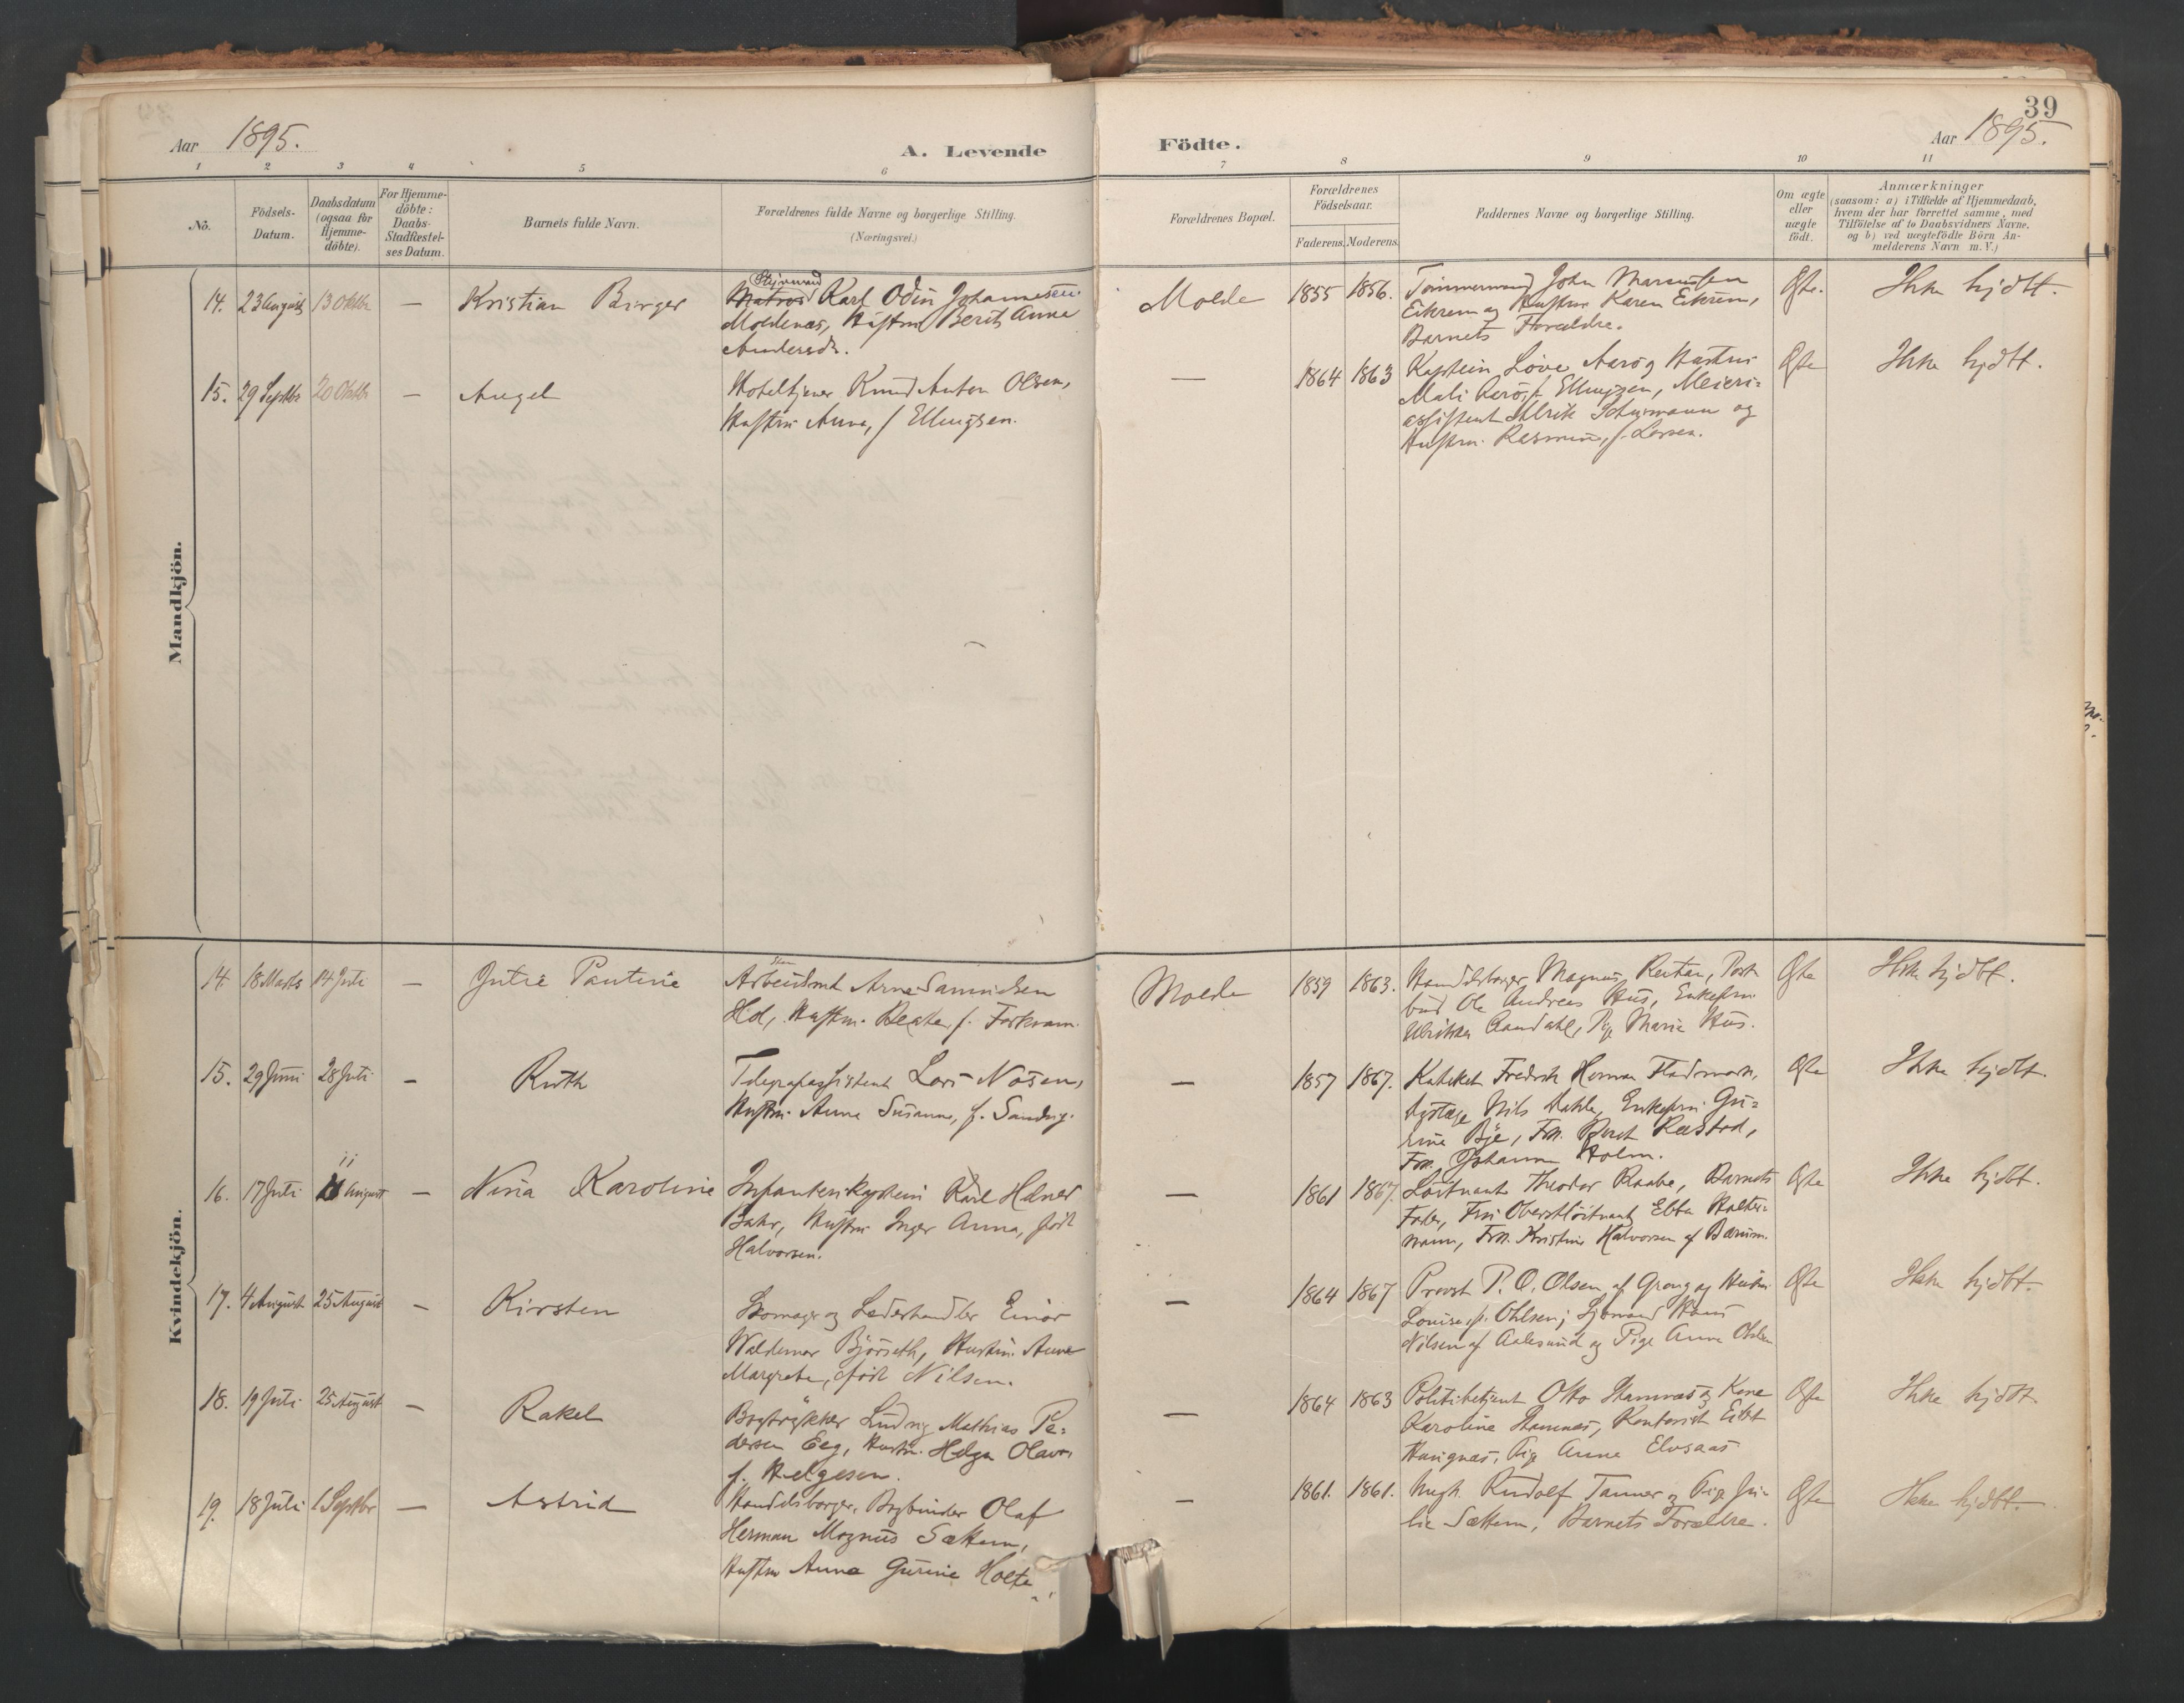 39
Aar 1895.
A. Levende Födte.
Aar 1895.
1 2 3 4 5 6 7 8 9 10 11
No.
Födsels-Datum.
Daabsdatum (ogsaa for Hjemme-döbte).
For Hjemme-döbte: Daabs-Stadfæstel-ses Datum.
Barnets fulde Navn.
Forældrenes fulde Navne og borgerlige Stilling.
(Næringsvei.)
Forældrenes Bopæl.
Forældrenes Födselsaar.
Faderens. Moderens.
Faddernes Navne og borgerlige Stilling.
Om ægte eller uægte födt.
Anmærkninger
(saasom: a) i Tilfælde af Hjemmedaab,
hvem der har forrettet samme, med
Tilföielse af to Daabsvidners Navne,
og b) ved uægtefödte Börn An-
melderens Navn m. V.)
Mandkjön.
14. 23 August 13 Oktbr — Kristian Birger
Styrmand
Matros Karl Odin Johannesen
Moldenæs, Hustru Berit Anna
Andersdr.
Molde 1855 1856.
Tømmermand John
Eikrem og Hustru Karen Eikrem,
Barnets Forældre.
Ægte. Ikke hjdbt.
15. 29 Septbr 20 Oktbr — Angel
Hoteltjener Knud Anton Olsen,
Hustru Anna, f. Ellingsen.
— 1864 1863
Kaptein Löve Aarö og Hustru
Mali Aarö, f. Ellingsen, Meieri-
assistent Ulrik og
Hustru Rasmine, f. Larsen.
Ægte Ikke hjdbt.
Kvindekjön.
14. 18 Marts 14 Juli — Jutie Pauline
Arne Samuelsen
Hol, Hustru Beate, f.
Molde 1859 1863.
Handelsborger Magnus Post-
bud Ole Andreas Hus, Enkefru
Ulrikke Aandahl, Pige Marie Hus.
Ægte Ikke hjdbt.
15. 29 Juni 28 Juli — Ruth
Telegrafassistent Lars Nøsen,
Hustru Anna Susanne, f. Sandvig.
— 1857 1867.
Kateket Fredrik Herman Fladmark,
Nils Dahle, Enkefru Gu-
rine Bje, Frk. Berit Ræstad,
Frk. Johanna Holm.
Ægte Ikke hjdbt.
16. 17 Juli 11 August — Nina Karoline
Infanterikaptein Karl Heiner
Bahr, Hustru Inger Anna, født
Halvorsen.
— 1861 1867.
Löitnant Theodor Raabe, Barnets
Fader, Fru Oberstlöitnant Ebba Holter-
mann, Frk. Kristine Halvorsen af Bærum.
Ægte Ikke hjdbt.
17. 4 August 25 August — Kirsten
Skomager og Læderhandler Einar
Waldemar Björseth, Hustru Anna
Margrete, född Nilsen.
— 1864 1867
Provst P. O. Olsen af Grong og Hustru
Louise, f. Ohlsen; Sjömand Hans
Nilsen af Aalesund og Pige Anna Ohlsen
Ægte Ikke hjdbt.
18. 19 Juli 25 August — Rakel
Bogtrykker Ludvig Mathias Pe-
dersen Eeg, Hustru Helga Olava
f. Helgesen.
— 1864 1863
Politibetjent Otto Hamnæs og Kone
Karoline Hamnes, Kontorist
Pige Anna Elvsaas
Ægte Ikke hjdbt.
19. 18 Juli 1 Septbr — Astrid
Handelsborger, Bogbinder Olaf
Herman Magnus Sættem,
Hustru Anna Gurine Holte
— 1861. 1861.
Ungk. Rudolf Tanner og Pige Ju-
lie Sættem, Barnets Forældre.
Ægte Ikke hjdbt.